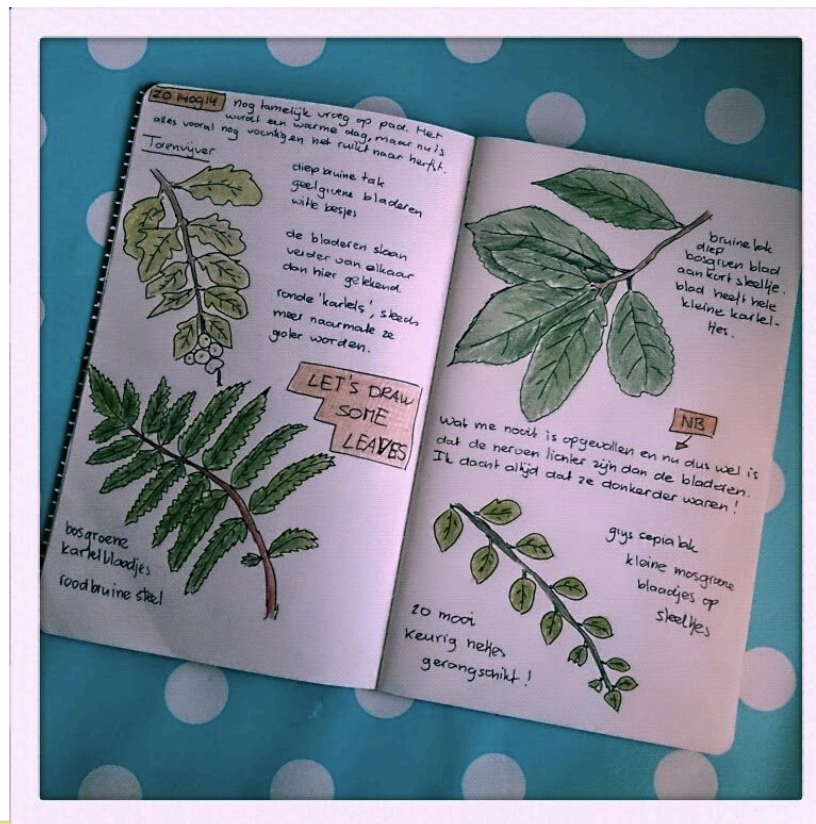 nog tamelijk vroeg op pad. Het
wordt een warme dag, maar nu is
alles vooral nog vochtig en het ruikt naar herfst.
Torenvijver
diep bruine tak
geelgroene bladeren
witte besjes
de bladeren staan
verder van elkaar
dan hier getekend
ronde 'kartels', steeds
meer naarmate ze
groter worden.
LET'S DRAW
SOME
LEAVES
bosgroene
kartelblaadjes
roodbruine steel
bruine tak
diep
bosgroen blad
aan kort steeltje.
blad heeft hele
kleine kartel-
tjes.
NB
Wat me nooit is opgevallen en nu dus wel is
dat de nerven lichter zijn dan de bladeren.
Ik dacht altijd dat ze donkerder waren!
grijs sepia tak
kleine mosgroene
blaadjes op
steeltjes
zo mooi
keurig netjes
gerangschikt!